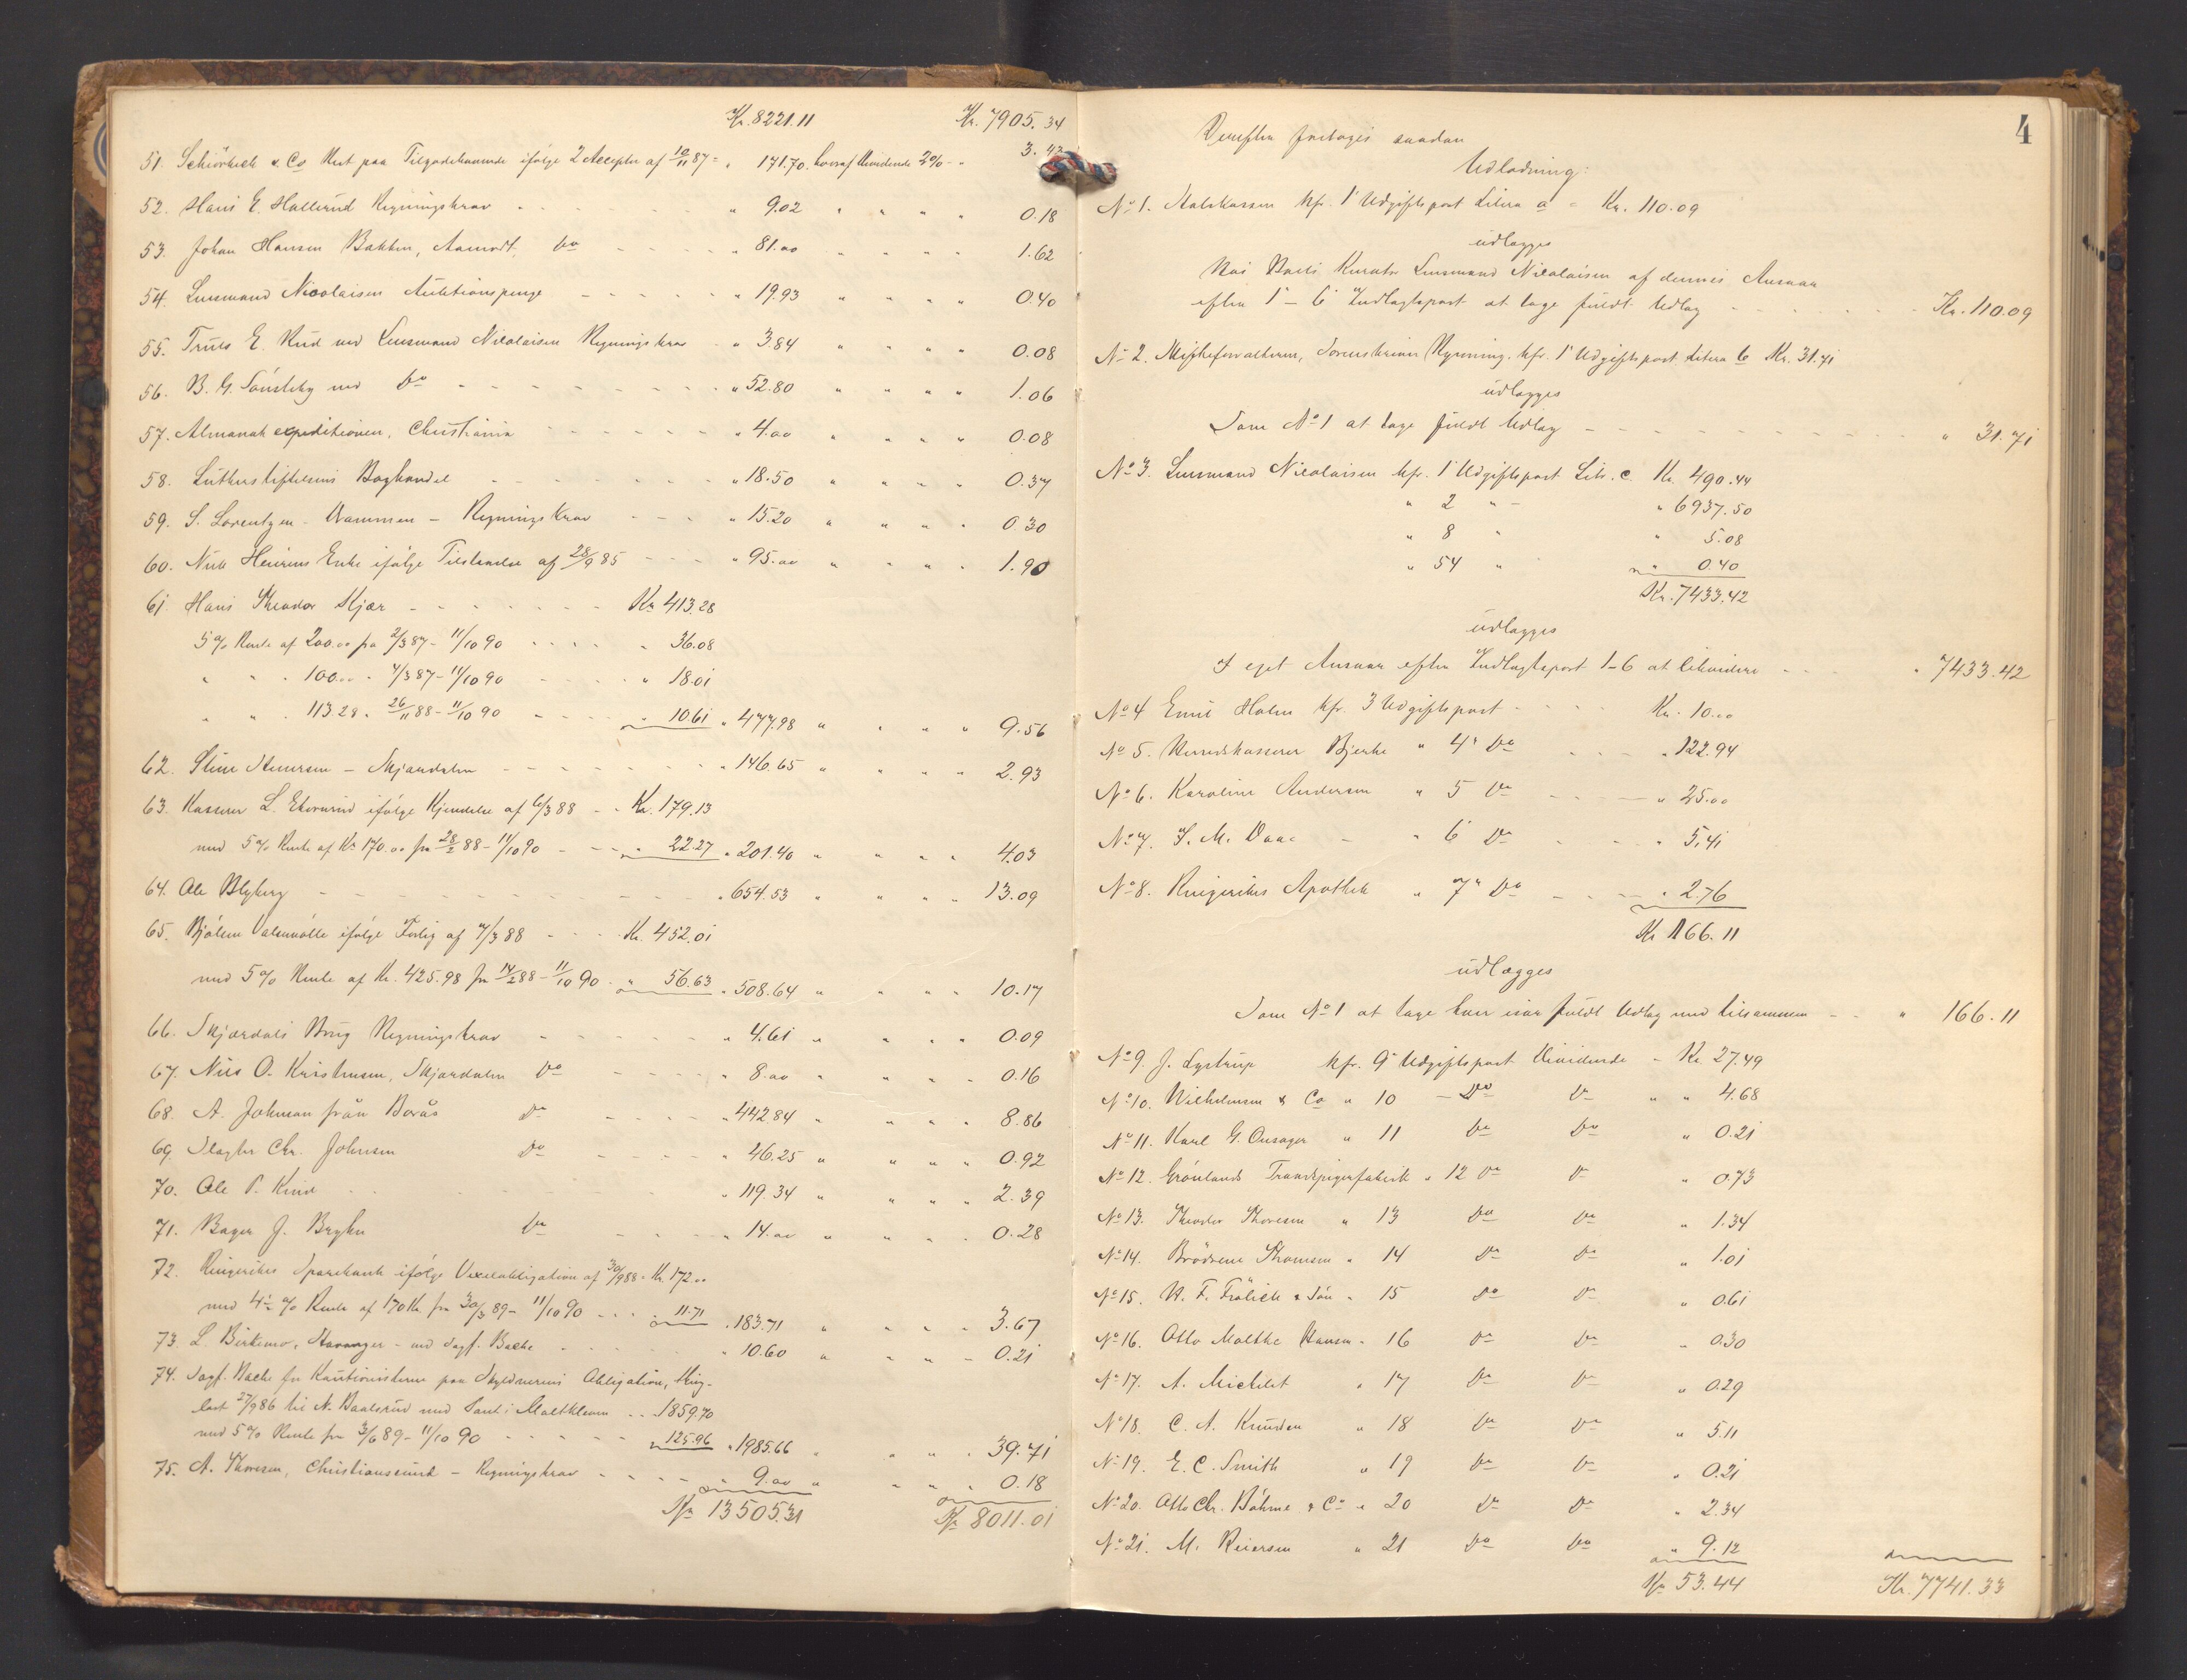 Kr. 8221.11 Kr. 7905.34
51. Schiörbeck & Co Rest paa Tilgodehavende ifølge 2 Accepter af 10/11 87 = " 171.70. hvoraf Dividende 2% - " 3.43
52. Hans E. Hallerud Regningskrav - - - " 9.02 " " " " 0.18
53. Johan Hansen Bakken, Aamodt, Do - - - " 81.00 " " " " 1.62
54. Lensmand Nicolaisen Auktionspenge - - - " 19.93 " " " " 0.40
55. Truls E. Rud ved Lensmand Nicolaisen Regningskrav - " 3.84 " " " " 0.08
56. B. G. Sønsteby ved Do - - - " 52.80 " " " " 1.06
57. Almanakexpeditionen, Christiania - - - " 4.00 " " " " 0.08
58. Lutherstiftelsens Boghandel - - - " 18.50 " " " " 0.37
59. S. Lorentzen - Drammen - Regningskrav - - - " 15.20 " " " " 0.30
60. Nub Heieriens Enke ifølge Tilstaaelse af 28/9 85 - - - " 95.00 " " " " 1.90
61. Hans Theodor Kjær - - - Kr. 413.28
5% Rente af 200.00 fra 2/3 87 - 11/10 90 - - - " 36.08
" " " 100.00 " 4/3 87 - 11/10 90 - - - " 18.01
" " " 113.28 " 26/11 88 - 11/10 90 - - - " 10.61 " 477.98 " " " " 9.56
62. Stine Iversen - Skjærdalen - - - " 146.65 " " " " 2.93
63. Kasserer L. Ekornrud ifølge Kjendelse af 6/3 88 - - Kr. 179.13
med 5% Rente af Kr. 170.00 fra 28/2 88 - 11/10 90 - - " 22.27 " 201.40 " " " " 4.03
64. Ole Blyberg - - - " 654.53 " " " " 13.09
65. Bjølsen Valsemølle ifølge Forlig af 7/3 88 - - - Kr. 452.01
med 5% Rente af Kr. 425.98 fra 14/2 88 - 11/10 90 - " 56.63 " 508.64 " " " " 10.17
66. Skjærdals Brug Regningskrav - - - " 4.61 " " " " 0.09
67. Nils O. Kristensen, Skjærdalen Do - - - " 8.00 " " " " 0.16
68. A. Johnson från Borås Do - - - " 442.84 " " " " 8.86
69. Slagter Chr. Johnsen Do - - - " 46.25 " " " " 0.92
70. Ole P. Rud - - - " 119.34 " " " " 2.39
71. Bager J. Bryhn Do - - - " 14.00 " " " " 0.28
72. Ringerikes Sparebank ifølge Vexelobligation af 30/9 88 - Kr. 172.00
med 4½% Rente af 170 Kr. fra 30/3 89 - 11/10 90 - - - " 11.71 " 183.71 " " " " 3.67
73. L. Birkemo, Stavanger - ved Sagf. Bache - - - " 10.60 " " " " 0.21
74. Sagf. Bache for Kautionisterne paa Skyldnerens Obligation, thing-
læst 27/9 86 til N. Baalsrud med Pant i Maltkleven - - " 1859.70
med 5% Rente fra 3/6 89 - 11/10 90 - - - " 125.96 " 1985.66 " " " " 39.71
75. A. Thoresen, Christianssund - Regningskrav - - - " 9.00 " " " " 0.18
Kr. 13505.31 Kr. 8011.01
4
Derefter foretoges saadan
Udlodning:
No 1. Statskassen kfr. 1' Udgiftspost Litera a = Kr. 110.09
udlægges
Hos Boets Kurator Lensmand Nicolaisen af dennes Ansvar
efter 1' - 6' Indtægtspost at tage fuldt Udlæg - - - Kr. 110.09
No 2. Skifteforvalteren, Sorenskriver Rynning kfr. 1' Udgiftspost Litera b Kr. 31.71
udlægges
Som No 1 at tage fuldt Udlæg - - - " 31.71
No 3. Lensmand Nicolaisen kfr. 1' Udgiftspost Litr. c. Kr. 490.44
" 2 " - " 6937.50
" 8 " " 5.08
" 54 " " 0.40
Kr. 7433.42
udlægges
I eget Ansvar efter Indtægtspost 1-6 at likvidere - - - " 7433.42
No 4 Emil Holm kfr. 3 Udgiftspost - - - Kr. 10.00
No 5. Herredskasserer Bjerke " 4' Do - - - " 122.94
No 6. Karoline Andersen " 5 Do - - - " 25.00
No 7. I. M. Daae - " 6' Do - - - " 5.41
No 8. Ringerikes Apothek " 7' Do - - - " 2.76
Kr. 166.11
udlægges
Som No 1 at tage hver især fuldt Udlæg med tilsammen - - " 166.11
No 9. J. Lystrup kfr. 9' Udgiftspost Dividende - Kr. 27.49
No 10. Wilhelmsen & Co " 10 - Do Do " " 4.68
No 11. Karl G. Onsager " 11 Do Do " 0.21
No 12. Grønlands Trandspigerfabrik " 12 Do Do " 0.73
No 13. Theodor Thoresen " 13 Do Do " 1.34
No 14. Brødrene Thomsen " 14 Do Do " 1.01
No 15. H. F. Frölich & Søn " 15 Do Do " 0.61
No 16. Otto Moltke Hansen " 16 Do Do " 0.30
No 17. A. Michelet " 17 Do Do " 0.29
No 18. C. A. Knudsen " 18 Do Do " 5.11
No 19. E. C. Smith " 19 Do Do " 0.21
No 20. Otto Chr. Böhme & Co " 20 Do Do " 2.34
No 21. M. Reiersen " 21 Do Do " 9.12
Kr. 53.44 Kr. 7741.33